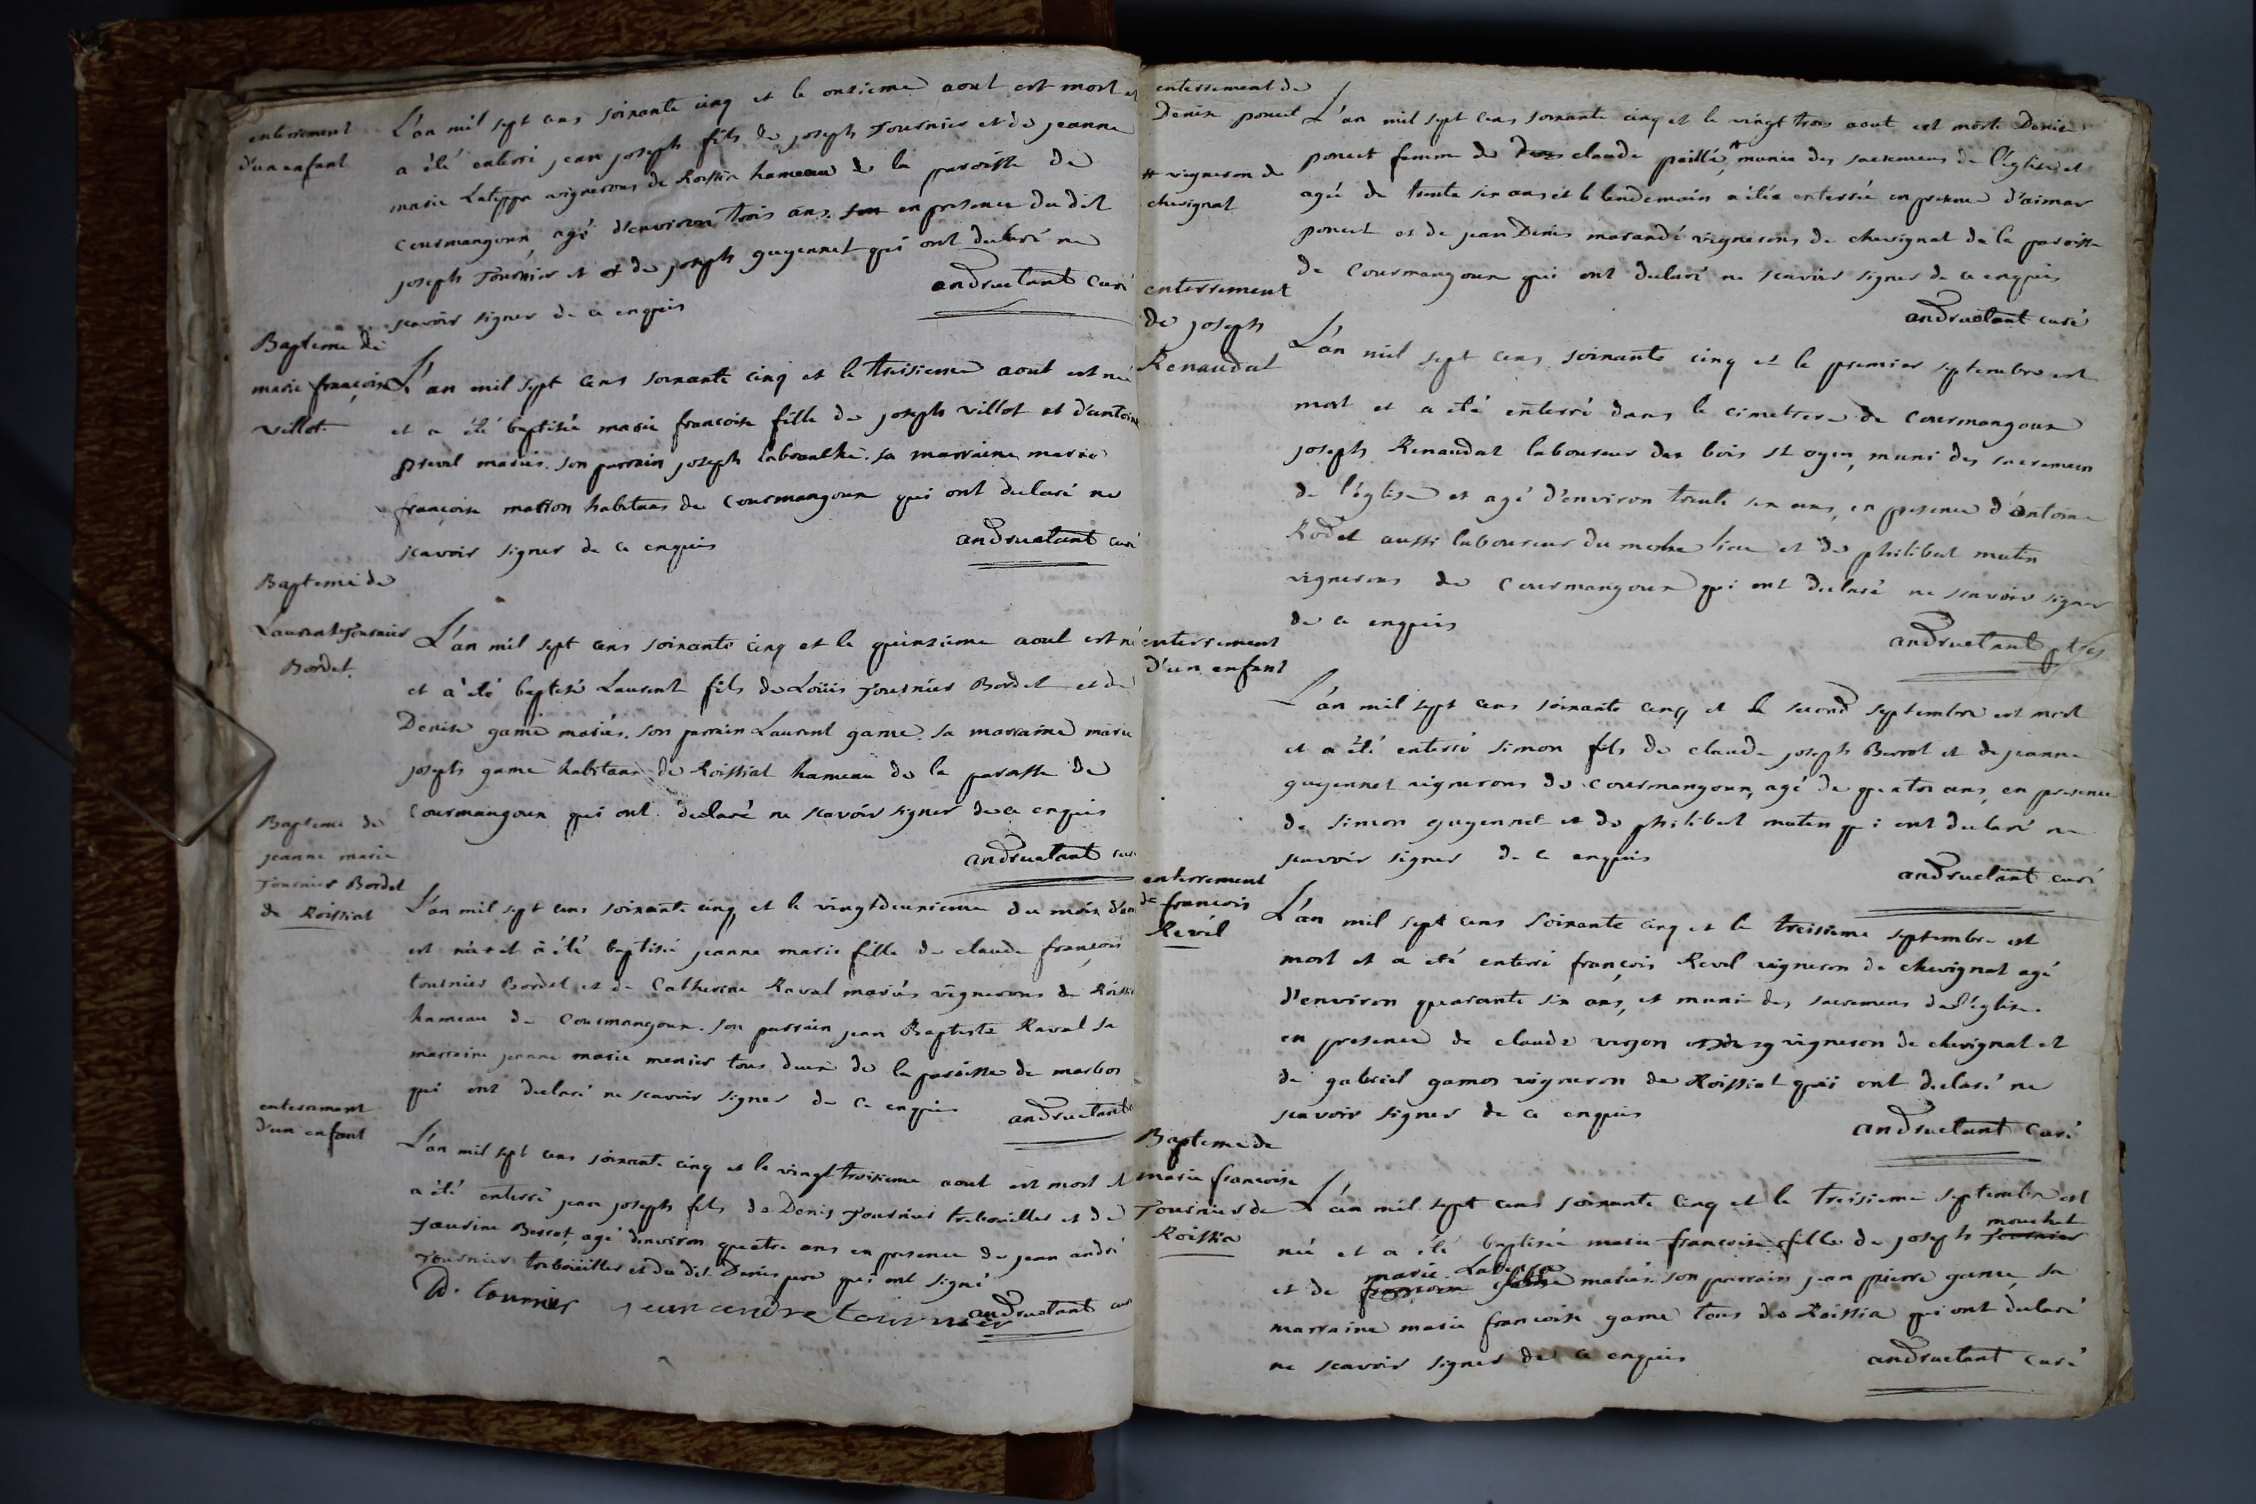 enterrement
d'un enfant
L'an mil sept cens soixante cinq et le onzieme aout est mort et
a été enterré jean joseph fils de joseph Tournier et de jeanne
marie Lateppe vignerons de Roissia hameau de la paroisse de
Courmangoux, agé d'environ trois ans. en presence du dit
joseph Tournier et de joseph guyennet qui ont declaré ne
scavoir signer de ce enquis
andructant curé
Bapteme de
marie françoise
villot
L'an mil sept cens soixante cinq et le treisieme aout est née
et a été baptisée marie francoise fille de joseph villot et d'antoine
preval mariés. son parrain joseph sa marraine marie
françoise habitans de Courmangoux qui ont declaré ne
scavoir signer de ce enquis
andructant curé
Bapteme de
Laurent Tournier
Bordet
L'an mil sept cens soixante cinq et le quinzieme aout est né
et a été baptisé Laurent fils de Loüis Tournier Bordet et de
Denise game mariés. son parrain Laurent game. sa marraine marie
joseph game habitans de Roissiat hameau de la paroisse de
Courmangoux qui ont declaré ne scavoir signer de ce enquis
andructant curé
Bapteme de
jeanne marie
Tournier Bordet
de Roissiat
L'an mil sept cens soixante cinq et le vingtdeuxieme du mois d'aou
est née et a été baptisée jeanne marie fille de claude françois
tournier Bordet et de Catherine Raval mariés vignerons de Roissia
hameau de Courmangoux. son parrain jean Baptiste Raval sa
marraine jeanne marie menier tous deux de la paroisse de marbos
qui ont declaré ne scavoir signer de ce enquis
andructant
enterrement
d'un enfant
L'an mil sept cens soixante cinq et le vingt troisieme aout est mort et
a été enterré jean joseph fils de Denis Tournier trebouillet et de
Jaurine Berrot, agé d'environ quatre ans en presence de jean andré
Tournier trebouillet et du dit Denis pere qui ont signé
D. tournier jean andre tournier andructant curé
enterrement de
Denise poncet
L'an mil sept cens soixante cinq et le vingt trois aout est morte Denise
poncet femme de claude paillé,# munie des sacremens de l'église et
# vigneron de
chevignat
agée de trente six ans et le lendemain a été enterrée en presence d'aimar
poncet et de jean Denis marandé vignerons de chevignat de la paroisse
de Courmangoux qui ont declaré ne scavoir signer de ce enquis
andructant curé
enterrement
de joseph
Renaudat
L'an mil sept cens soixante cinq et le premier septembre est
mort et a été enterré dans le cimetiere de Courmangoux
joseph Renaudat laboureur des bois st oyen, muni des sacremen
de l'église et agé d'environ trente six ans, en presence d'antoine
Rodet aussi laboureur du meme lieu et de philibert mutin
vignerons de Courmangoux qui ont declaré ne scavoir signer
de ce enquis
andructant ptre
enterrement
d'un enfant
L'an mil sept cens soixante cinq et le second septembre est mort
et a été enterré simon fils de claude joseph Berrot et de jeanne
guyennet vignerons de Courmangoux, agé de quatre ans, en presence
de simon guyennet et de philibert mutin qui ont declaré ne
scavoir signer de ce enquis
andructant curé
enterrement
de françois
Revel
L'an mil sept cens soixante cinq et le treisieme septembre est
mort et a été enterré françois Revel vigneron de chevignat agé
d'environ quarante six ans, et muni des sacremens de l'église.
en presence de claude verjon vigneron de chevignat et
de gabriel gamos vigneron de Roissiat qui ont declaré ne
scavoir signer de ce enquis
andructant curé
Bapteme de
marie francoise
Tournier de
Roissia
L'an mil sept cens soixante cinq et le treisieme septembre est
née et a été baptisée marie francoise fille de joseph Tournier mouchet
et de marie Lateppe mariés. son parrain jean pierre game, sa
marraine marie francoise game tous de Roissia qui ont declaré
ne scavoir signer de ce enquis
andructant curé